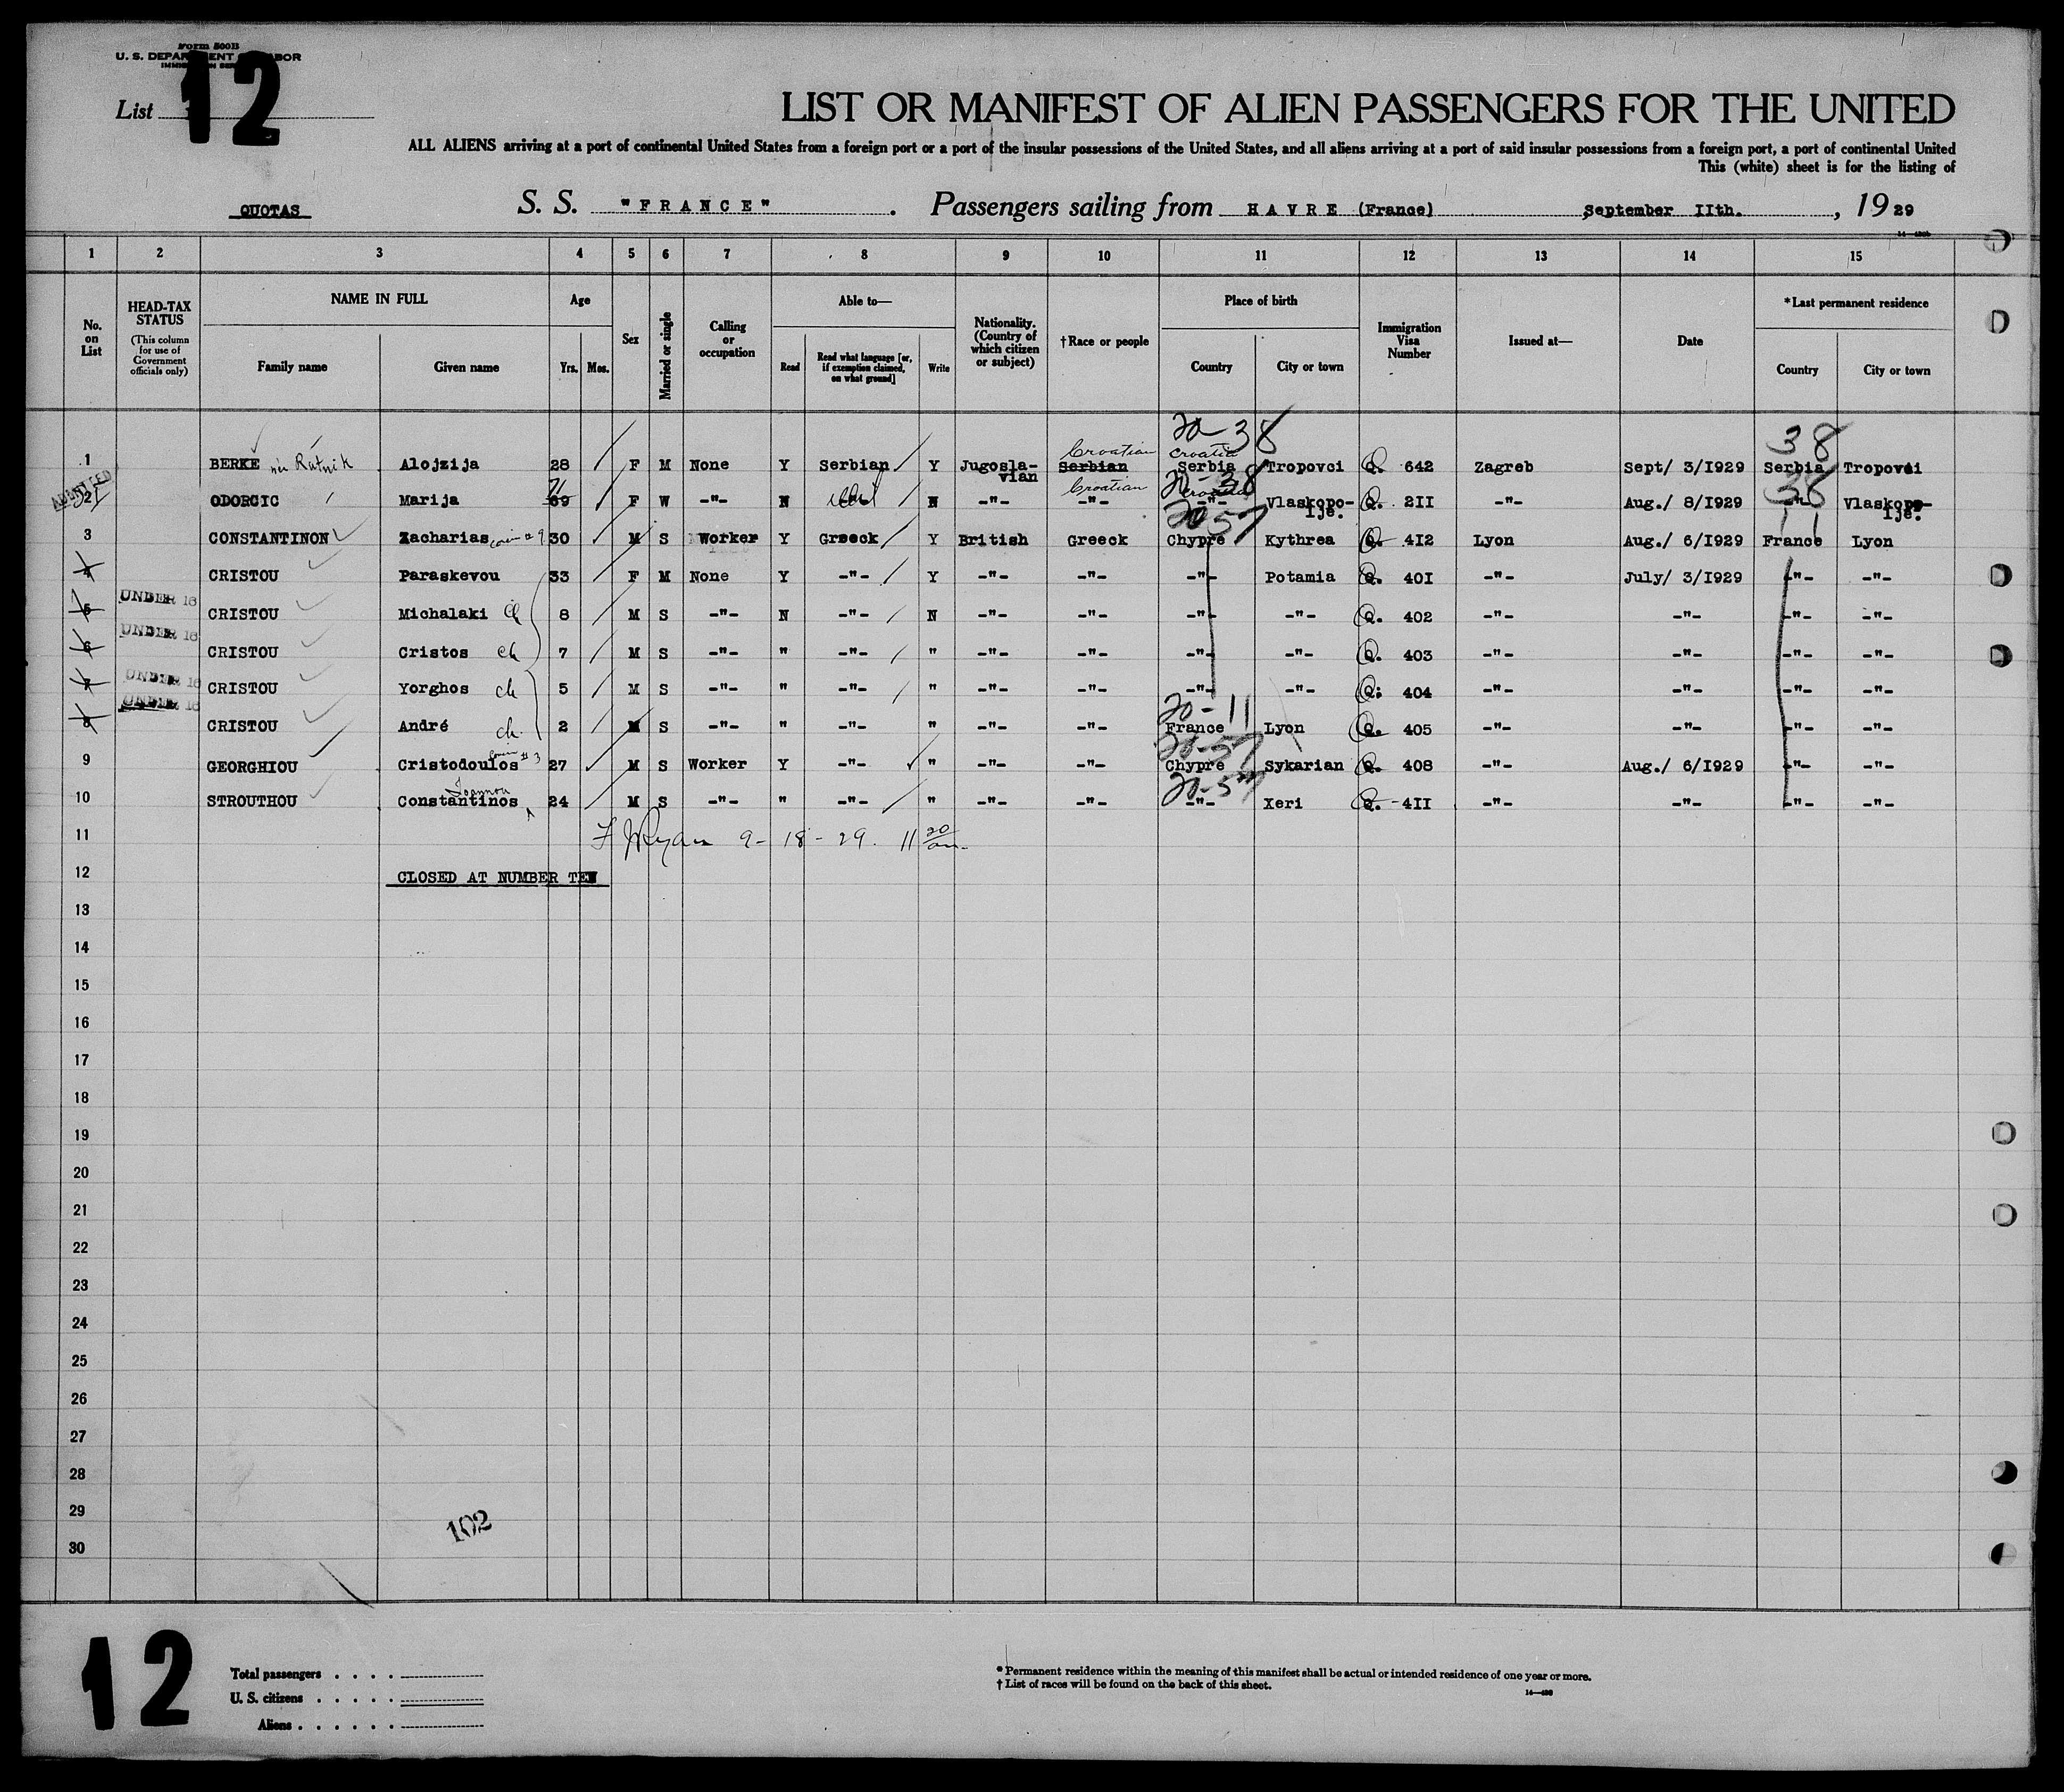 Form 500B
U. S. DEPARTMENT OF LABOR
IMMIGRATION SERVICE
List 12
LIST OR MANIFEST OF ALIEN PASSENGERS FOR THE UNITED
ALL ALIENS arriving at a port of continental United States from a foreign port or a port of the insular possessions of the United States, and all aliens arriving at a port of said insular possessions from a foreign port, a port of continental United
This (white) sheet is for the listing of
QUOTAS S. S. "FRANCE" . Passengers sailing from HAVRE (France) September IIth. , 1929
1 2 3 4 5 6 7 8 9 10 11 12 13 14 15
No. on List
HEAD-TAX STATUS (This column for use of Government officials only)
NAME IN FULL Family name Given name
Age Yrs. Mos.
Sex
Married or single
Calling or occupation
Able to— Read Read what language [or, if exemption claimed, on what ground] Write
Nationality. (Country of which citizen or subject)
†Race or people
Place of birth Country City or town
Immigration Visa Number
Issued at—
Date
*Last permanent residence Country City or town
20-38 38
Croatian Croatia
1 BERKE née Ratnik Alojzija 28 F M None Y Serbian Y Jugosla-vian Serbian Serbia Tropovci Q. 642 Zagreb Sept/ 3/I929 Serbia Tropovci
ADMITTED 71 Croatian 20-38 Croatia 38
2 ODORCIC Marija 69 F W -"- N N -"- -"- -"- Vlaskopo-lje. Q. 2II -"- Aug./ 8/I929 -"- Vlaskopo-lje.
20-57 11
3 CONSTANTINON Zacharias cousin #9 30 M S Worker Y Greeck Y British Greeck Chypre Kythrea Q. 4I2 Lyon Aug./ 6/I929 France Lyon
4 CRISTOU Paraskevou 33 F M None Y -"- Y -"- -"- -"- Potamia Q. 40I -"- July/ 3/I929 -"- -"-
UNDER 16
5 CRISTOU Michalaki ch 8 M S -"- N -"- N -"- -"- -"- -"- Q. 402 -"- -"- -"- -"-
UNDER 16
6 CRISTOU Cristos ch 7 M S -"- " -"- " -"- -"- -"- -"- Q. 403 -"- -"- -"- -"-
UNDER 16
7 CRISTOU Yorghos ch 5 M S -"- " -"- " -"- -"- -"- -"- Q. 404 -"- -"- -"- -"-
UNDER 16 20-11
8 CRISTOU André ch 2 M S -"- " -"- " -"- -"- France Lyon Q. 405 -"- -"- -"- -"-
20-57
9 GEORGHIOU Cristodoulos cousin #3 27 M S Worker Y -"- " -"- -"- Chypre Sykarian Q. 408 -"- Aug./ 6/I929 -"- -"-
Ioannou 20-57
10 STROUTHOU Constantinos 24 M S -"- " -"- " -"- -"- -"- Xeri Q. 4II -"- -"- -"- -"-
11 F J Ryan 9-18-29. 11 20 am
12 CLOSED AT NUMBER TEN
13
14
15
16
17
18
19
20
21
22
23
24
25
26
27
28
29
102
30
12
Total passengers . . . .
U. S. citizens . . . . .
Aliens . . . . . .
* Permanent residence within the meaning of this manifest shall be actual or intended residence of one year or more.
† List of races will be found on the back of this sheet.